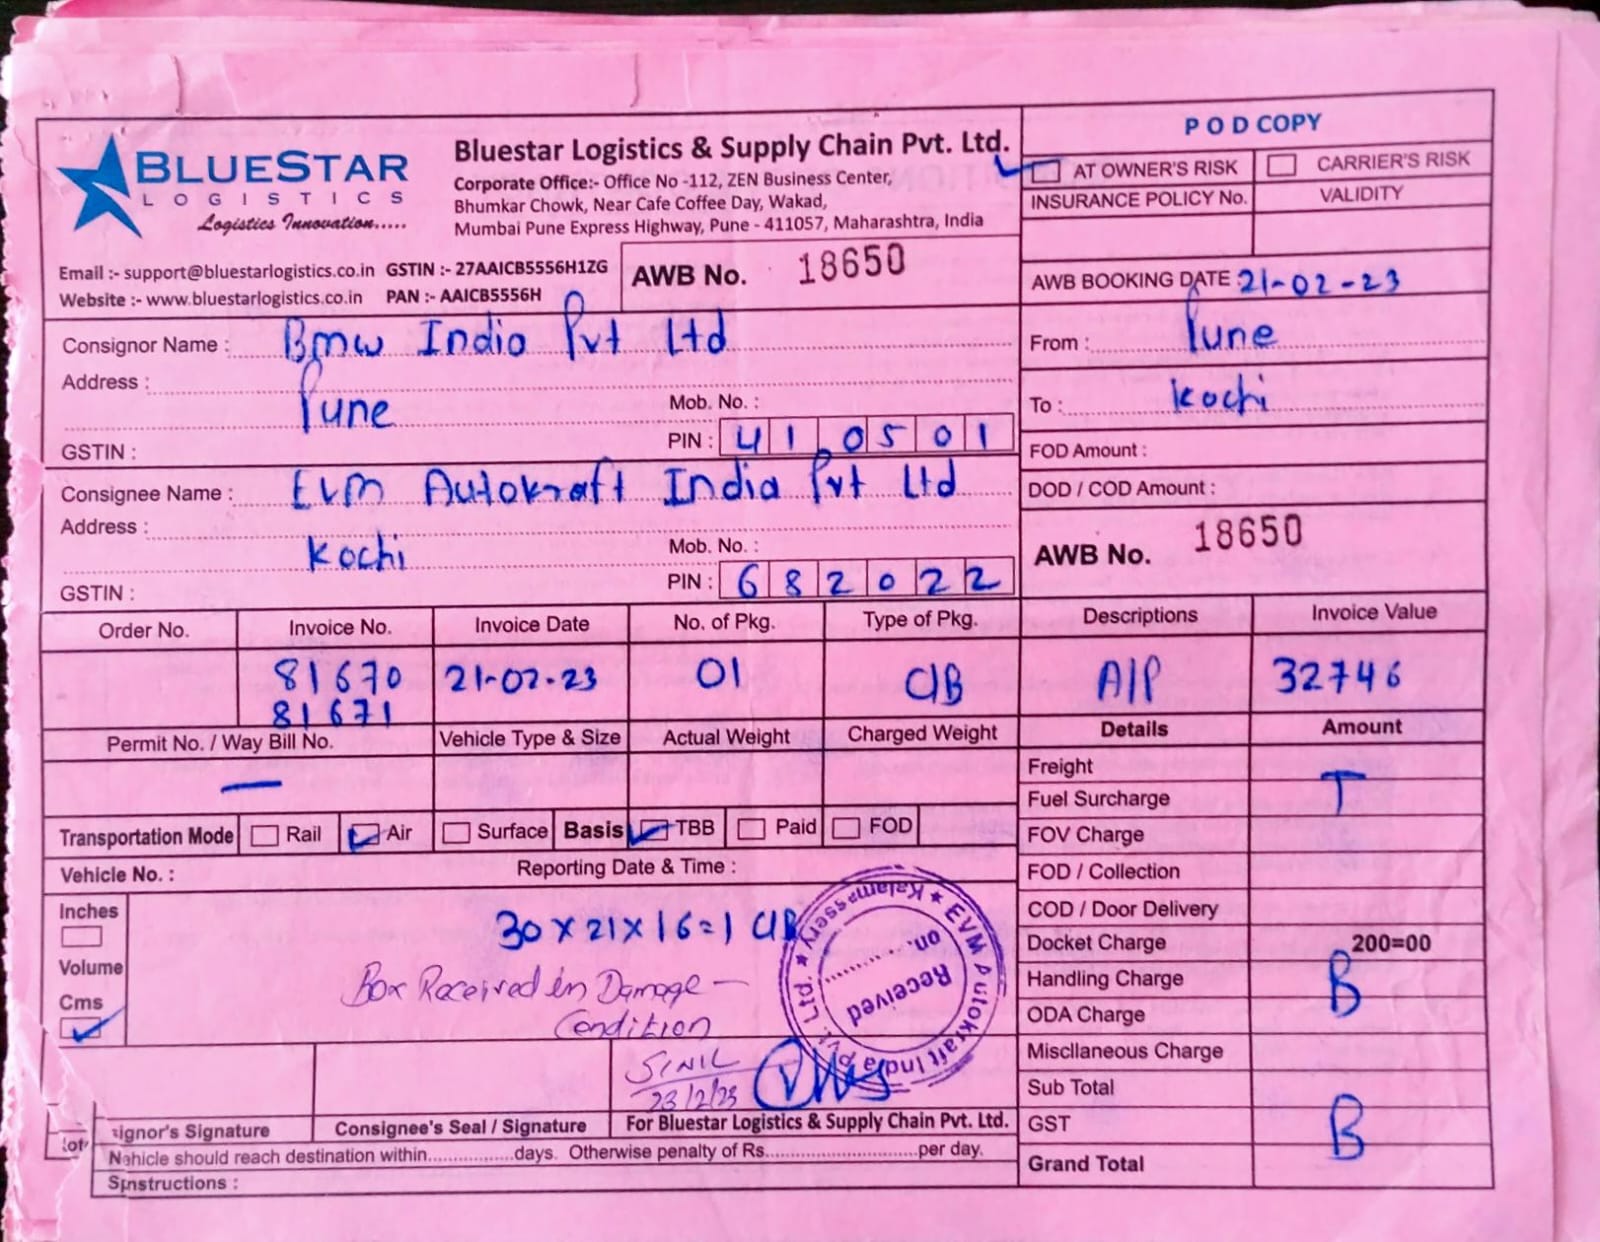 BLUESTAR
LOGISTICS
Logistics Innovation.....
Bluestar Logistics & Supply Chain Pvt. Ltd.
Corporate Office:- Office No -112, ZEN Business Center,
Bhumkar Chowk, Near Cafe Coffee Day, Wakad,
Mumbai Pune Express Highway, Pune - 411057, Maharashtra, India
Email :- support@bluestarlogistics.co.in GSTIN :- 27AAICB5556H1ZG
Website :- www.bluestarlogistics.co.in PAN :- AAICB5556H
AWB No. 18650
POD COPY
AT OWNER'S RISK CARRIER'S RISK
INSURANCE POLICY No. VALIDITY
AWB BOOKING DATE : 21-02-23
Consignor Name : Bmw India Pvt Ltd
Address :
Pune Mob. No. :
GSTIN : PIN : 410501
From : Pune
To : Kochi
FOD Amount :
DOD / COD Amount :
AWB No. 18650
Consignee Name : EVM Autokraft India Pvt Ltd
Address :
Kochi Mob. No. :
GSTIN : PIN : 682022
Order No. Invoice No. Invoice Date No. of Pkg. Type of Pkg. Descriptions Invoice Value
81670 21-02-23 01 C/B A/P 32746
81671
Permit No. / Way Bill No. Vehicle Type & Size Actual Weight Charged Weight Details Amount
—
Transportation Mode Rail Air Surface Basis TBB Paid FOD
Vehicle No. : Reporting Date & Time :
Inches
Volume
Cms
30 x 21 x 16 = 1 C/B
Box Received in Damage -
Condition
SINIL
23/2/23
EVM Autokraft India Pvt. Ltd. ★ Kalamassery ★
Received
on.
Freight
Fuel Surcharge T
FOV Charge
FOD / Collection
COD / Door Delivery
Docket Charge 200=00
Handling Charge B
ODA Charge
Miscllaneous Charge
Sub Total
GST B
Grand Total
ignor's Signature Consignee's Seal / Signature For Bluestar Logistics & Supply Chain Pvt. Ltd.
ehicle should reach destination within................days. Otherwise penalty of Rs............................per day.
nstructions :